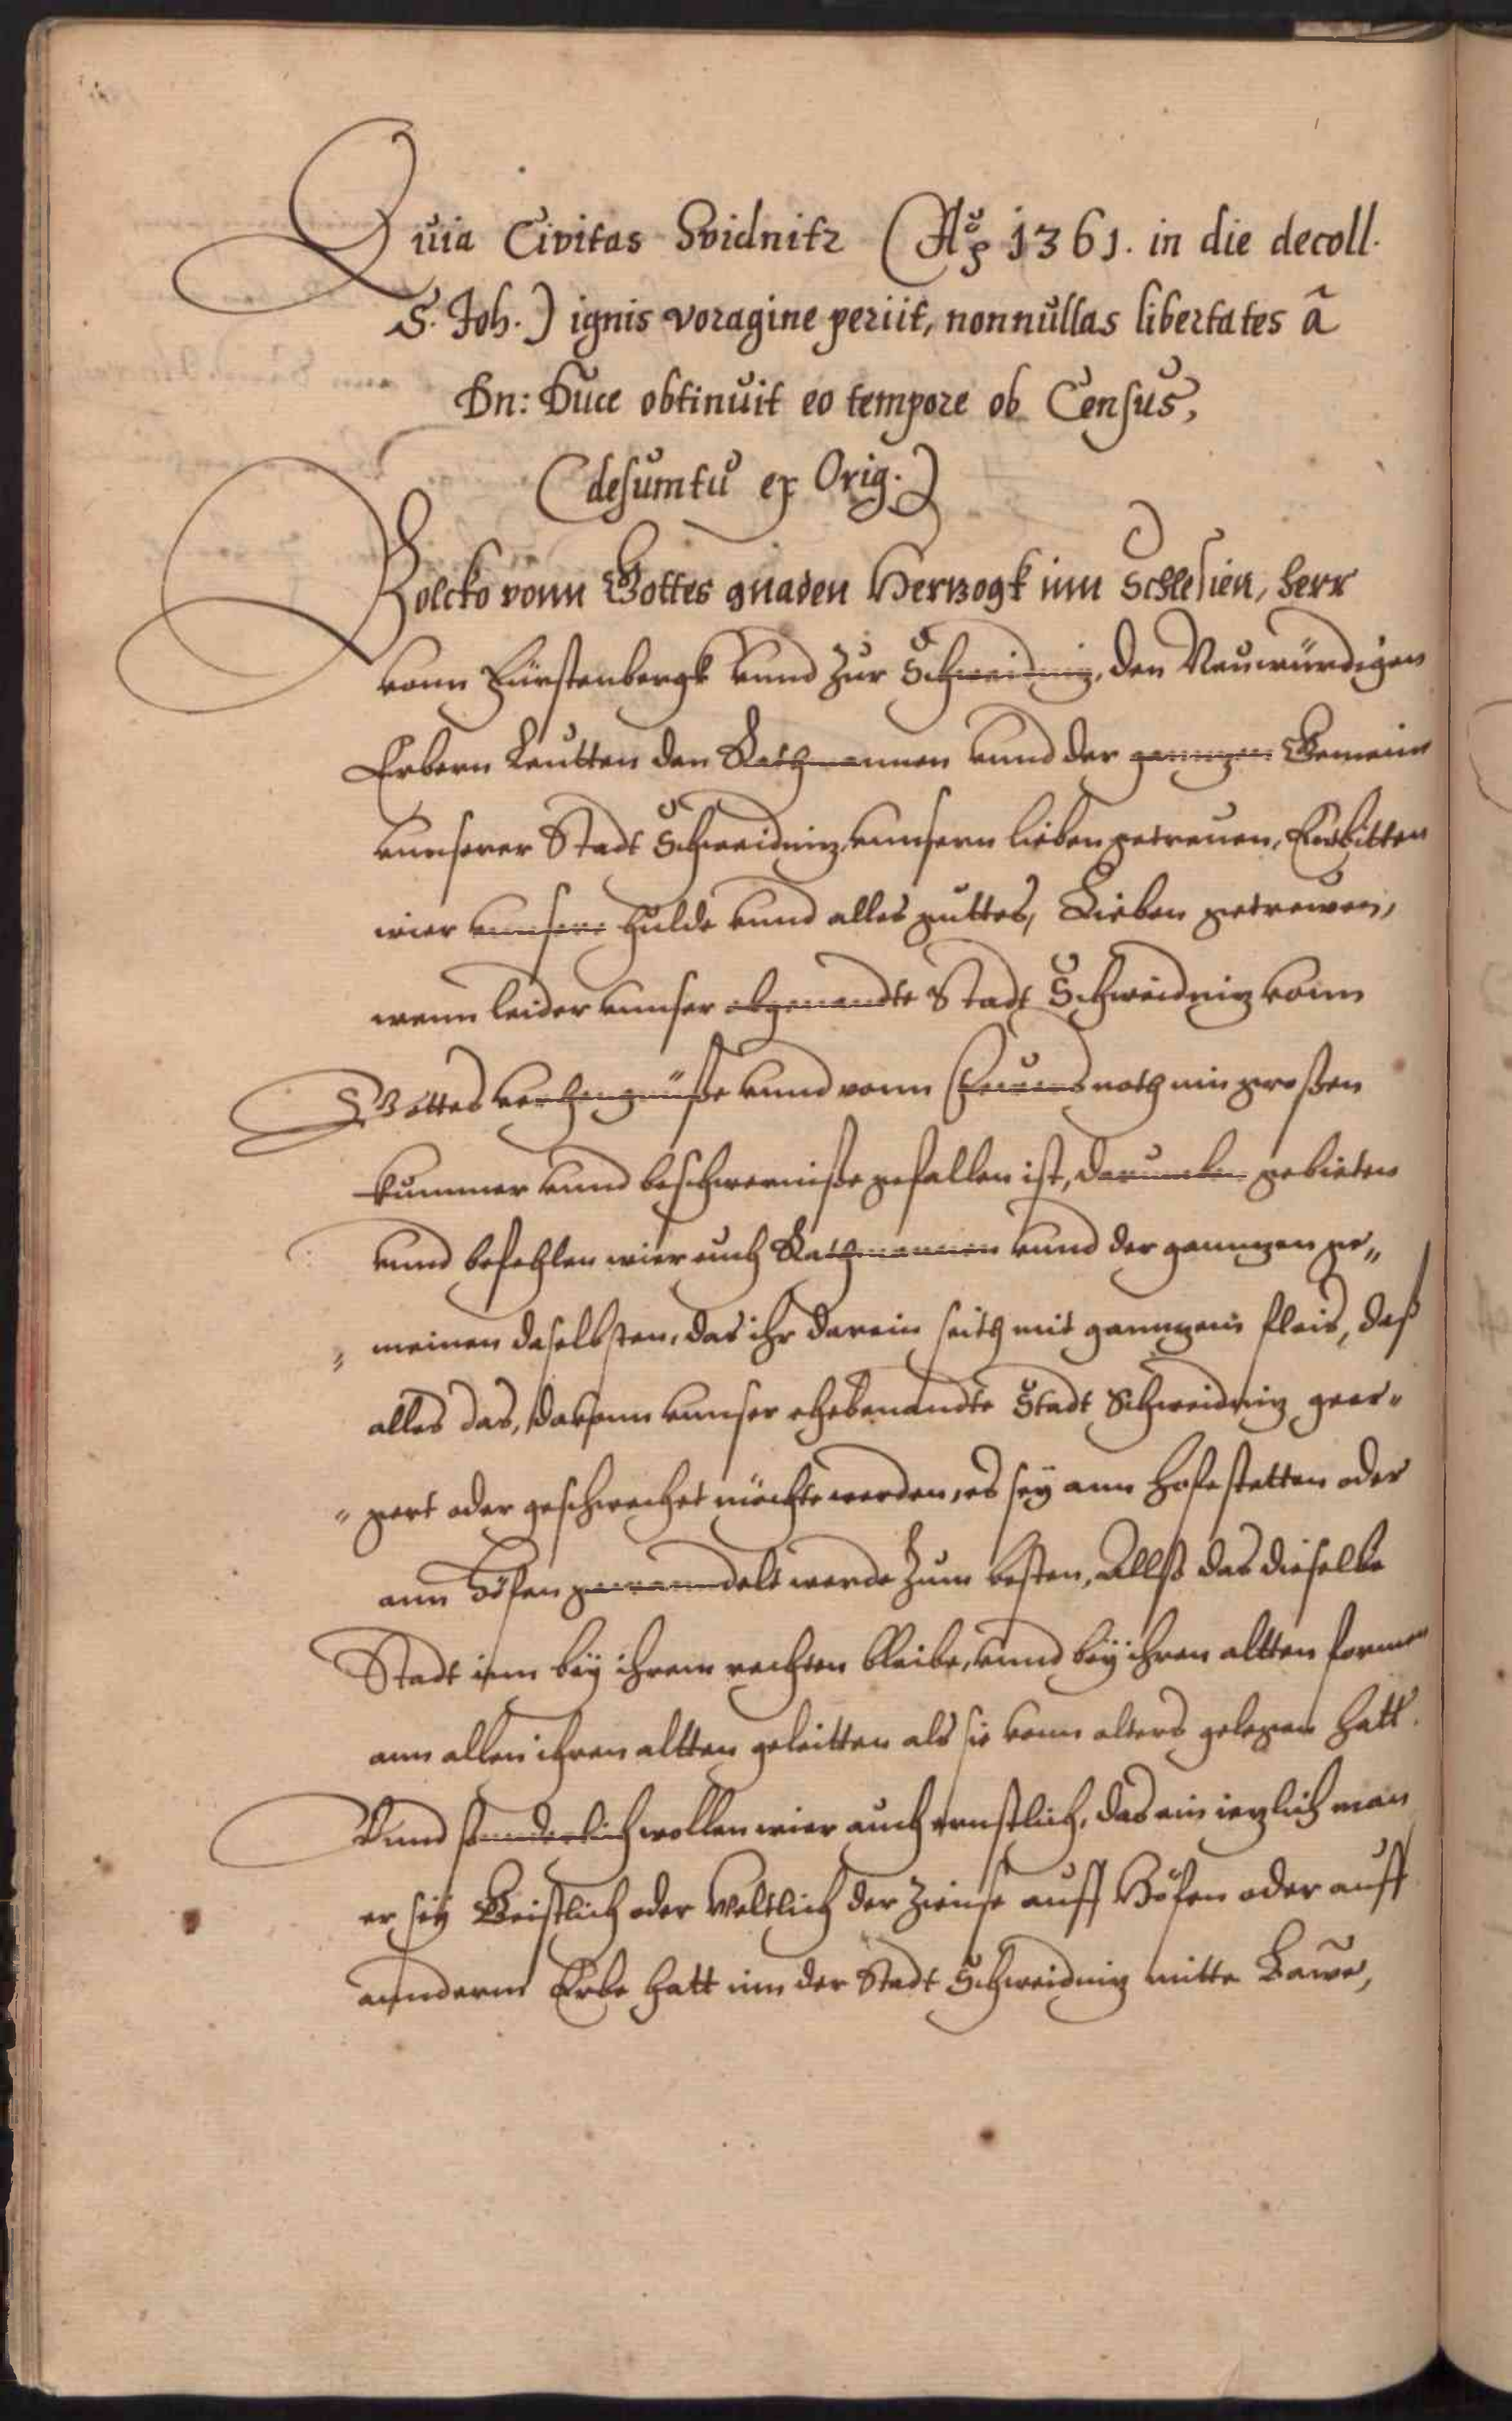 Quia Civitas Svidnitz (Aō 1361. in die decoll.
S. Joh.) ignis voragine periit, nonnullas libertates ā
Dn: Duce obtinuit eo tempore ob Census,
(desumtū ex Orig.)
Bolcko vonn Gottes gnaden Hertzogk inn Schlesien, Herr
vonn Fürstenbergk vnnd Zur Schweidnitz, den
Erbern Leutten den Rathmannen vnnd der ganntzen Gemein
vnnserer Stadt Schweidnitz, vnnsern lieben getreuen, Enbitten
wier vnnsere hulde vnnd alles guttes, Lieben getrewen,
wenn leider vnnser obgenandte Stadt Schweidnitz vonn
Gottes verhengnüße vnnd vonn Feuers noth inn großen
kummer vnnd beschwerniße gefallen ist, darumben gebieten
vnnd befehlen wier euch Rathmannen vnnd der ganntzen ge„
„ meinen daselbsten, das ihr darein seith mit ganntzem fleis, daß
alles das, davonn vnnser ehebenandte Stadt Schweidnitz geer„
„ gert oder geschwechet möchte werden, es sey ann Hofestetten oder
ann Höfen gewanndelt werde Zum besten, Allß das dieselbe
Stadt inn bey ihrem rechten bleibe, vnnd bey ihren altten formen
ann allen ihren altten geleitten als sie vonn alters gelegen hatt.
Vnnd sonnderlich wollen wier auch ernstlich, das ein ietzlich man
er sey Geistlich oder Weltlich der Zinnse auff Höfen oder auff
annderm Erbe hatt inn der Stadt Schweidnitz mitte Bawe,